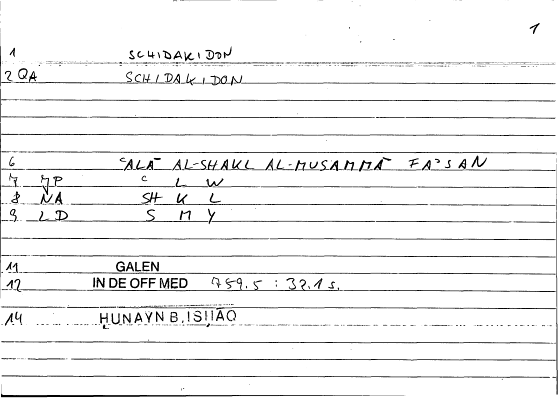 1
1 SCHIDAKIDON
2 QA SCHIDAKIDON
6 ʿALĀ AL-SHAKL AL-MUSAMMĀ FAʾSAN
7 JP ʿ L W
8 NA SH K L
9 LD S M Y
11 GALEN
12 IN DE OFF MED 789.5 : 32.1 s.
14 ḤUNAYN B. ISḤĀQ